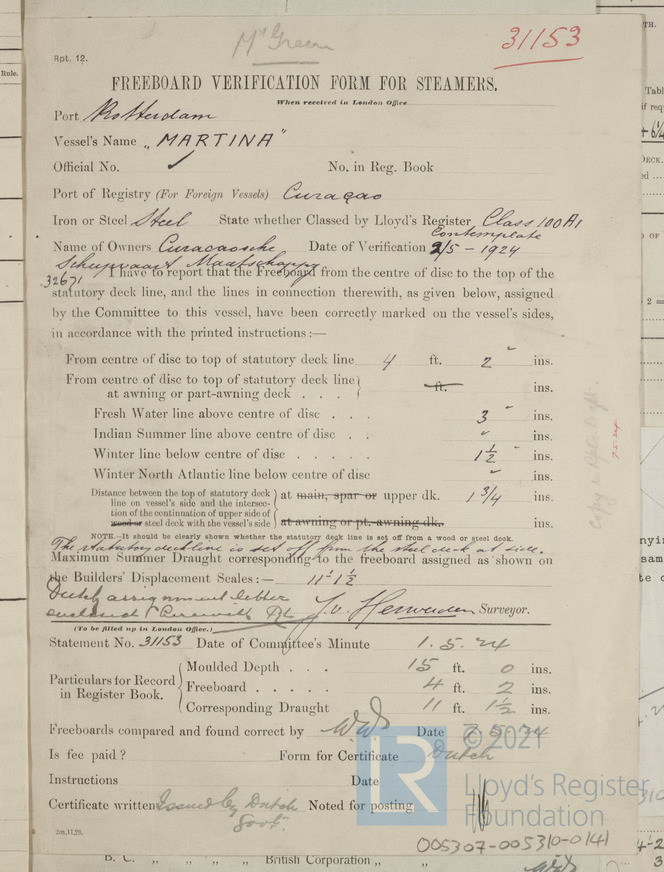 Mr Green
31153
Rpt. 12.
FREEBOARD VERIFICATION FORM FOR STEAMERS.
When received in London Office
Port Rotterdam
Vessel's Name „ MARTINA "
Official No. ✓ No. in Reg. Book
Port of Registry (For Foreign Vessels) Curaçao
Iron or Steel Steel State whether Classed by Lloyd's Register Class 100A1
Contemplate
Name of Owners Curacaosche Date of Verification 2/5 - 1924
Schupvaart Maatschappy
32671
I have to report that the Freeboard from the centre of disc to the top of the
statutory deck line, and the lines in connection therewith, as given below, assigned
by the Committee to this vessel, have been correctly marked on the vessel's sides,
in accordance with the printed instructions:—
From centre of disc to top of statutory deck line 4 ft. 2 ins.
From centre of disc to top of statutory deck line
at awning or part-awning deck . . . ft. ins.
Fresh Water line above centre of disc . . . 3 " ins.
Indian Summer line above centre of disc . . " ins.
Winter line below centre of disc . . . 1½ " ins.
Winter North Atlantic line below centre of disc " ins.
Distance between the top of statutory deck
line on vessel's side and the intersec-
tion of the continuation of upper side of
wood or steel deck with the vessel's side
at main, spar or upper dk. 1 3/4 ins.
at awning or pt.-awning dk.. ins.
NOTE.—It should be clearly shown whether the statutory deck line is set off from a wood or steel deck.
The statutory deckline is set off from the steel deck at side.
Maximum Summer Draught corresponding to the freeboard assigned as shown on
the Builders' Displacement Scales:— 11' 1½
Dutch assignment letter
enclosed herewith J. v. Herwerden Surveyor.
(To be filled up in London Office.)
Statement No. 31153 Date of Committee's Minute 1. 5. 24
Particulars for Record
in Register Book.
Moulded Depth . . . 15 ft. 0 ins.
Freeboard . . . . . 4 ft. 2 ins.
Corresponding Draught 11 ft. 1½ ins.
Freeboards compared and found correct by WW Date 7.5.24
Is fee paid? Form for Certificate Dutch
Instructions Date
Certificate written Issued by Dutch Noted for posting
Govt.
2m,11,20.
005307-005310-0141
© 2021
Lloyd's Register
Foundation
B. C. „ „ „ „ British Corporation „ „
Rule.